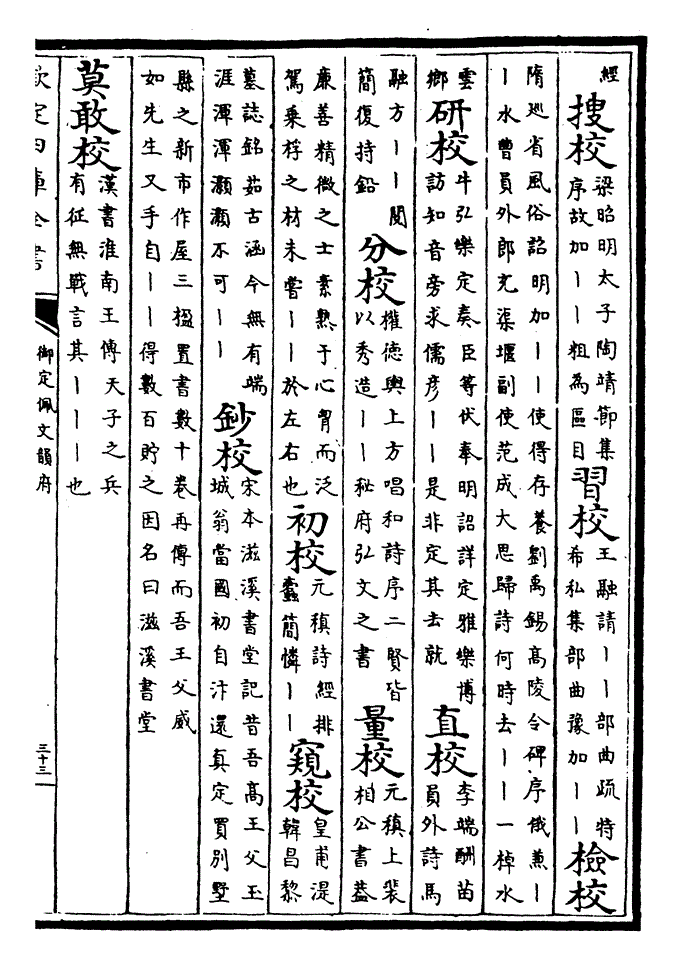 經
搜校
梁昭明太子陶靖節集
序故加丨丨粗為區目
習校
王融請丨丨部曲疏特
希私集部曲豫加丨丨
檢校
隋廵省風俗詔明加丨丨使得存養劉禹錫髙陵令碑序俄兼丨
丨水曹員外郎充渠堰副使范成大思歸詩何時去丨丨一棹水
雲
鄉
研校
牛弘樂定奏臣等伏奉明詔詳定雅樂博
訪知音旁求儒彥丨丨是非定其去就
直校
李端酬苗
員外詩馬
融方丨丨閱
簡復持鉛
分校
權德輿上方唱和詩序二賢皆
以秀造丨丨秘府弘文之書
量校
元稹上裴
相公書蓋
廉善精微之士素熟于心胷而泛
駕乗桴之材未嘗丨丨於左右也
初校
元稹詩經排
蠧簡憐丨丨
窺校
皇甫湜
韓昌黎
墓誌銘茹古涵今無有端
涯渾渾灝灝不可丨丨
鈔校
宋本滋溪書堂記昔吾髙王父玉
城翁當國初自汴還真定買別墅
縣之新市作屋三楹置書數十卷再傳而吾王父威
如先生又手自丨丨得數百貯之因名曰滋溪書堂
莫敢校
漢書淮南王傳天子之兵
有征無戰言其丨丨丨也
欽定四庫全書
御定佩文韻府
三十三